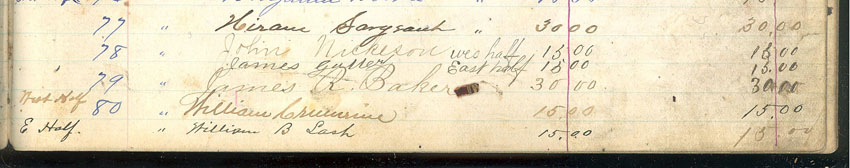 77 " Hiram Sargeant " 30.00 30,00
78 " John Nickeson west half 15.00 15.00
James Guller East half 15 00 15.00
79 " James R. Baker 30 00 30.00
West Half 80 " William Crumrine 15.00 15.00
E Half. " William B Lash 15.00 15 00